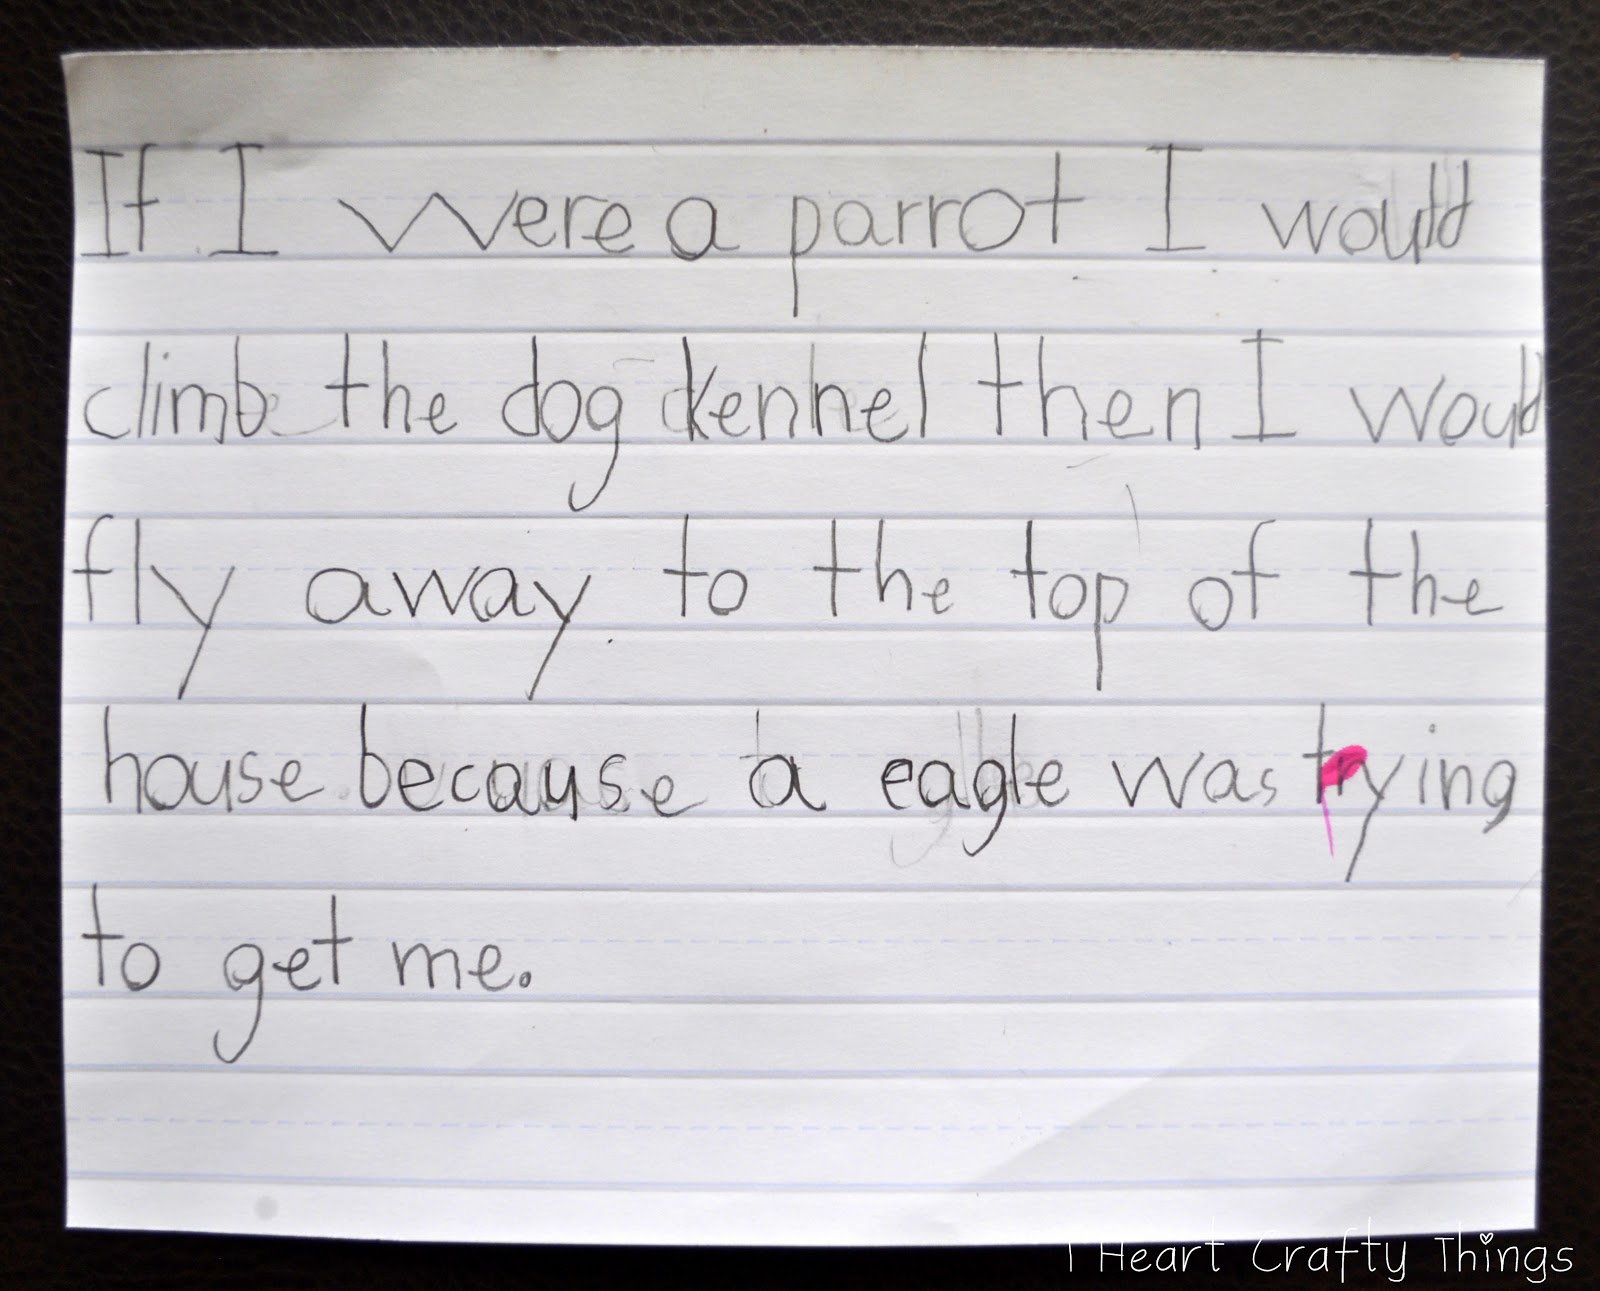 If I were a parrot I would
climb the dog kennel then I would
fly away to the top of the
house because a eagle was trying
to get me.
I Heart Crafty Things